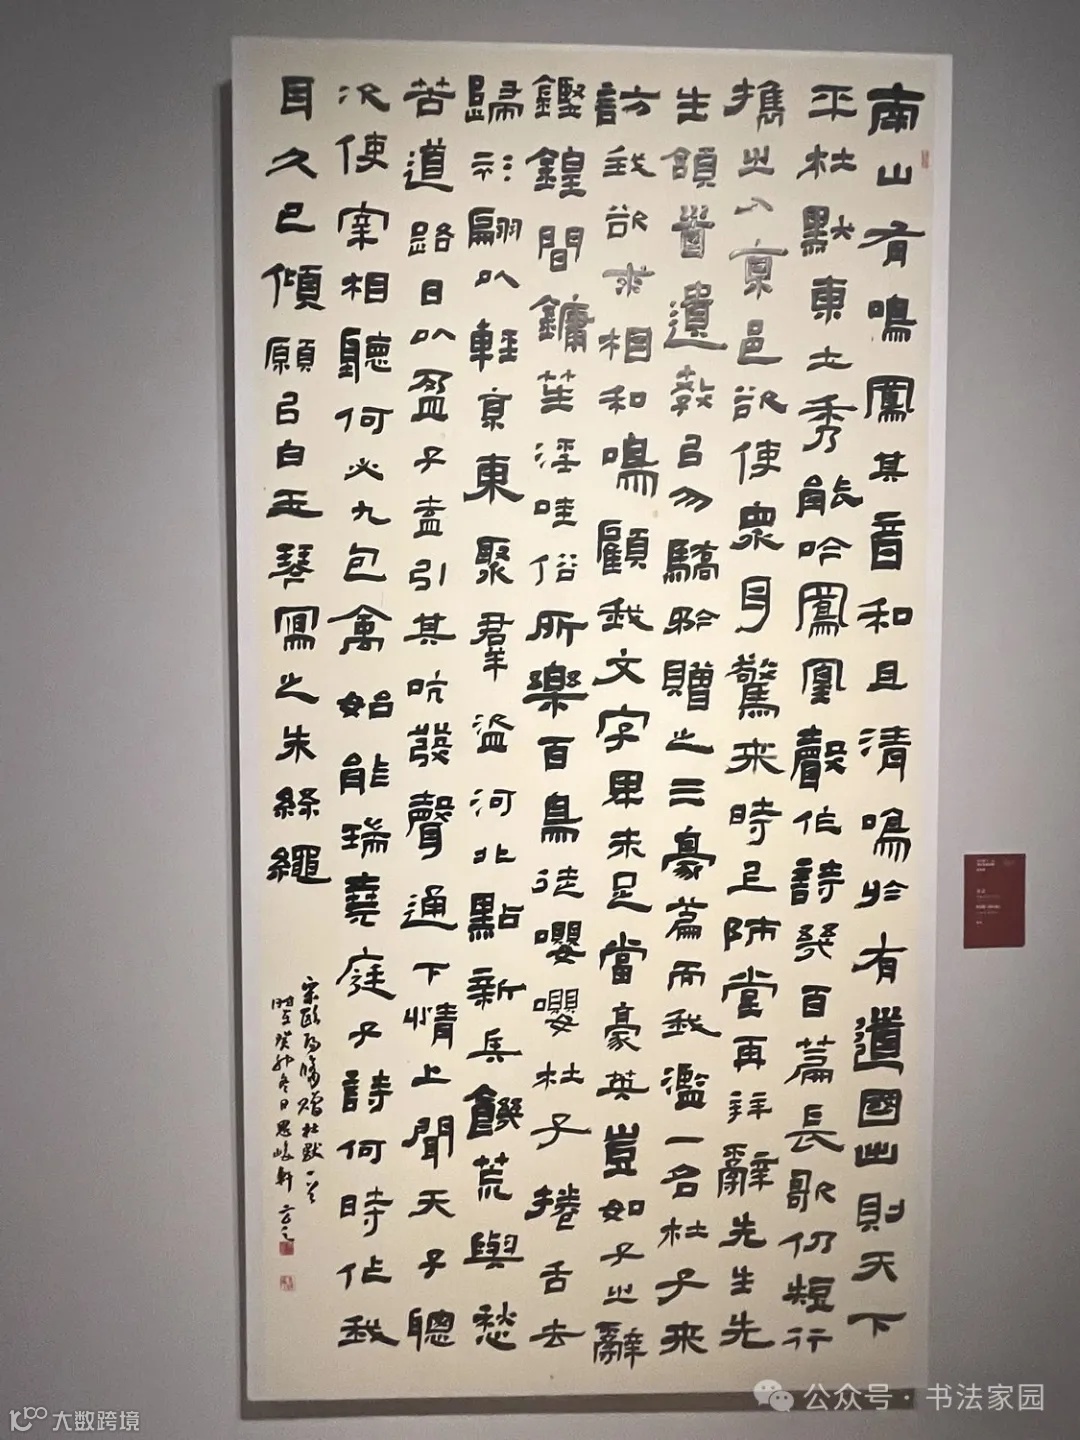 南山有鳴鳳其音和且清鳴於有道國出則天下
平杜默東土秀能吟鳳凰聲作詩發百篇長歌仍短行
攜之入京邑欲使眾耳驚來時上師堂再拜辭先生先
生頷首遺教以勿驕矜贈之三豪篇而我濫一名杜子來
訪我欲求相和鳴顧我文字果未足當豪英豈如子之辭
鏗鍠間鏞笙淫哇俗所樂百鳥徒嚶嚶杜子捲舌去
歸衫翩以輕京東聚群盜河北點新兵饑荒與愁
苦道路日以盈子盍引其吭發聲通下情上聞天子聰
次使宰相聽何必九包禽始能瑞堯庭子詩何時作我
耳久已傾願以白玉琴寫之朱絲繩
宋歐陽脩贈杜默一首
時在癸卯冬日思峻軒
公众号 · 书法家园
大数跨境